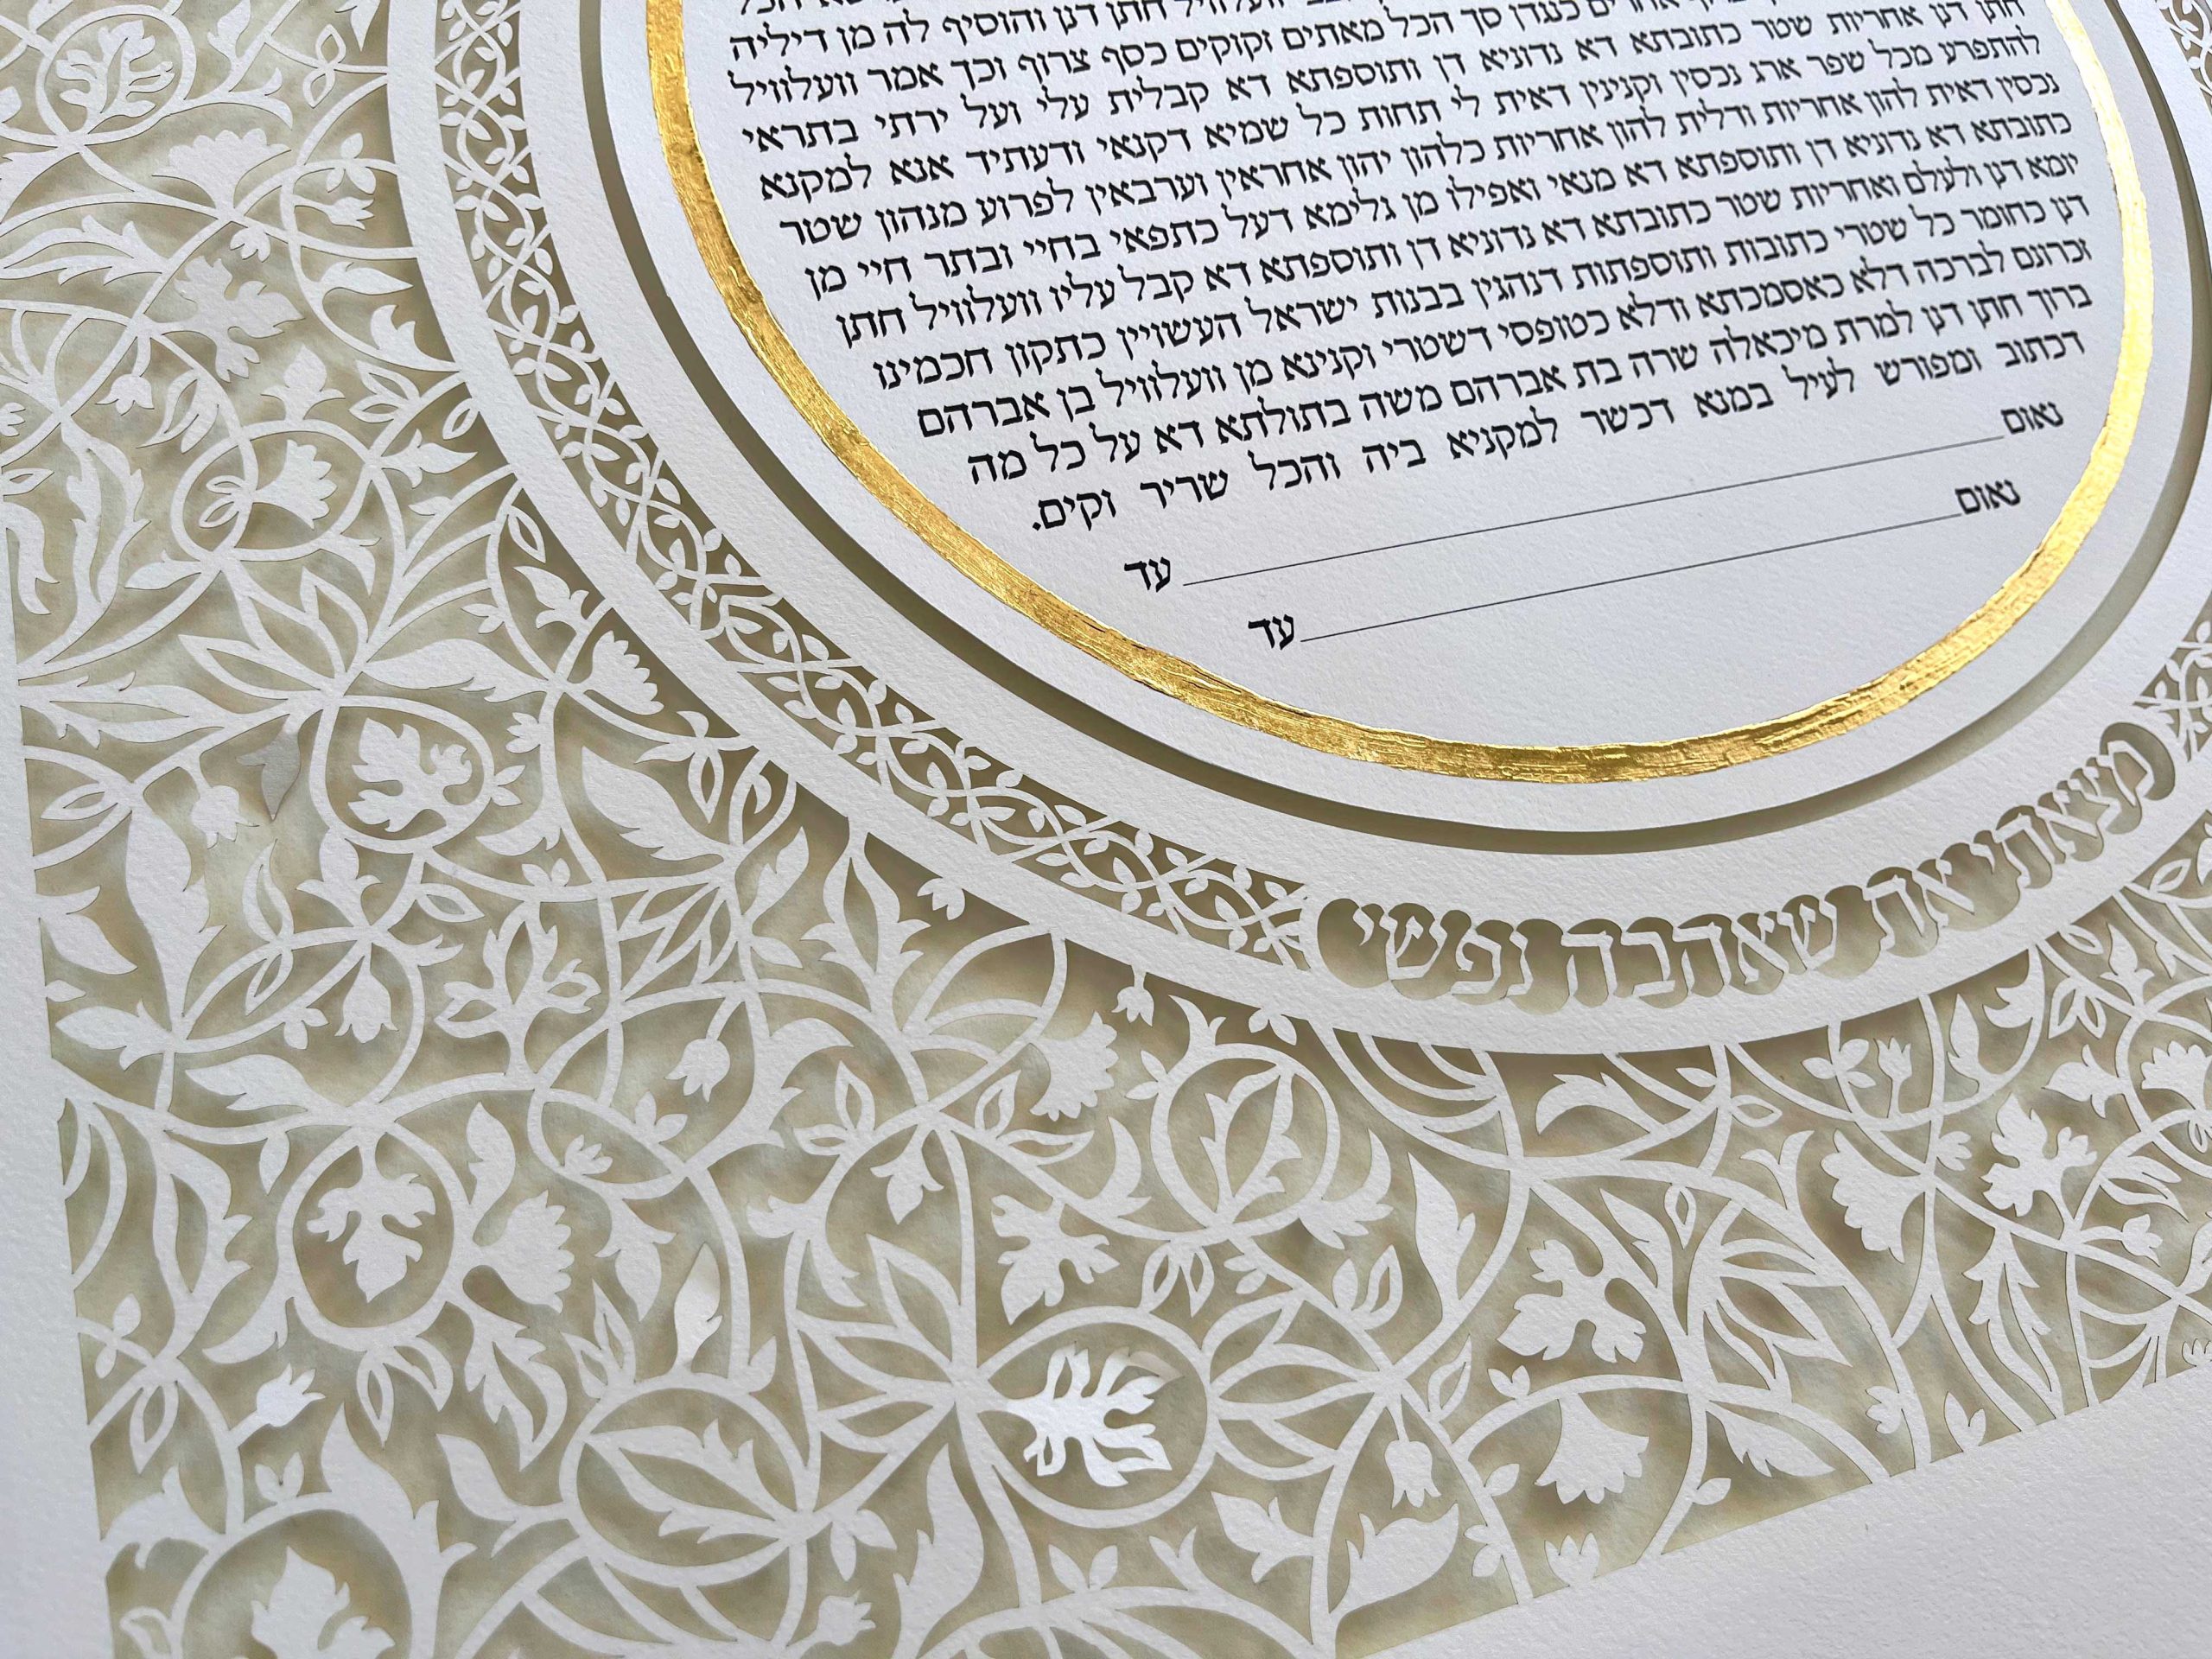 וועלוויל חתן דנן והוסיף לה מן דיליה
אחרים כנגדן סך הכל מאתים זקוקים כסף צרוף וכך אמר וועלוויל
חתן דנן אחריות שטר כתובתא דא נדוניא דן ותוספתא דא קבלית עלי ועל ירתי בתראי
להתפרע מכל שפר ארג נכסין וקנינין דאית לי תחות כל שמיא דקנאי ודעתיד אנא למקנא
נכסין דאית להון אחריות ודלית להון אחריות כלהון יהון אחראין וערבאין לפרוע מנהון שטר
כתובתא דא נדוניא דן ותוספתא דא מנאי ואפילו מן גלימא דעל כתפאי בחיי ובתר חיי מן
יומא דנן ולעלם ואחריות שטר כתובתא דא נדוניא דן ותוספתא דא קבל עליו וועלוויל חתן
דנן כחומר כל שטרי כתובות ותוספתות דנהגין בבנות ישראל העשויין כתקון חכמינו
זכרונם לברכה דלא כאסמכתא ודלא כטופסי דשטרי וקנינא מן וועלוויל בן אברהם
ברוך חתן דנן למרת מיכאלה שרה בת אברהם משה בתולתא דא על כל מה
דכתוב ומפורש לעיל במנא דכשר למקניא ביה והכל שריר וקים.
נאום עד
נאום עד
מצאתי את שאהבה נפשי